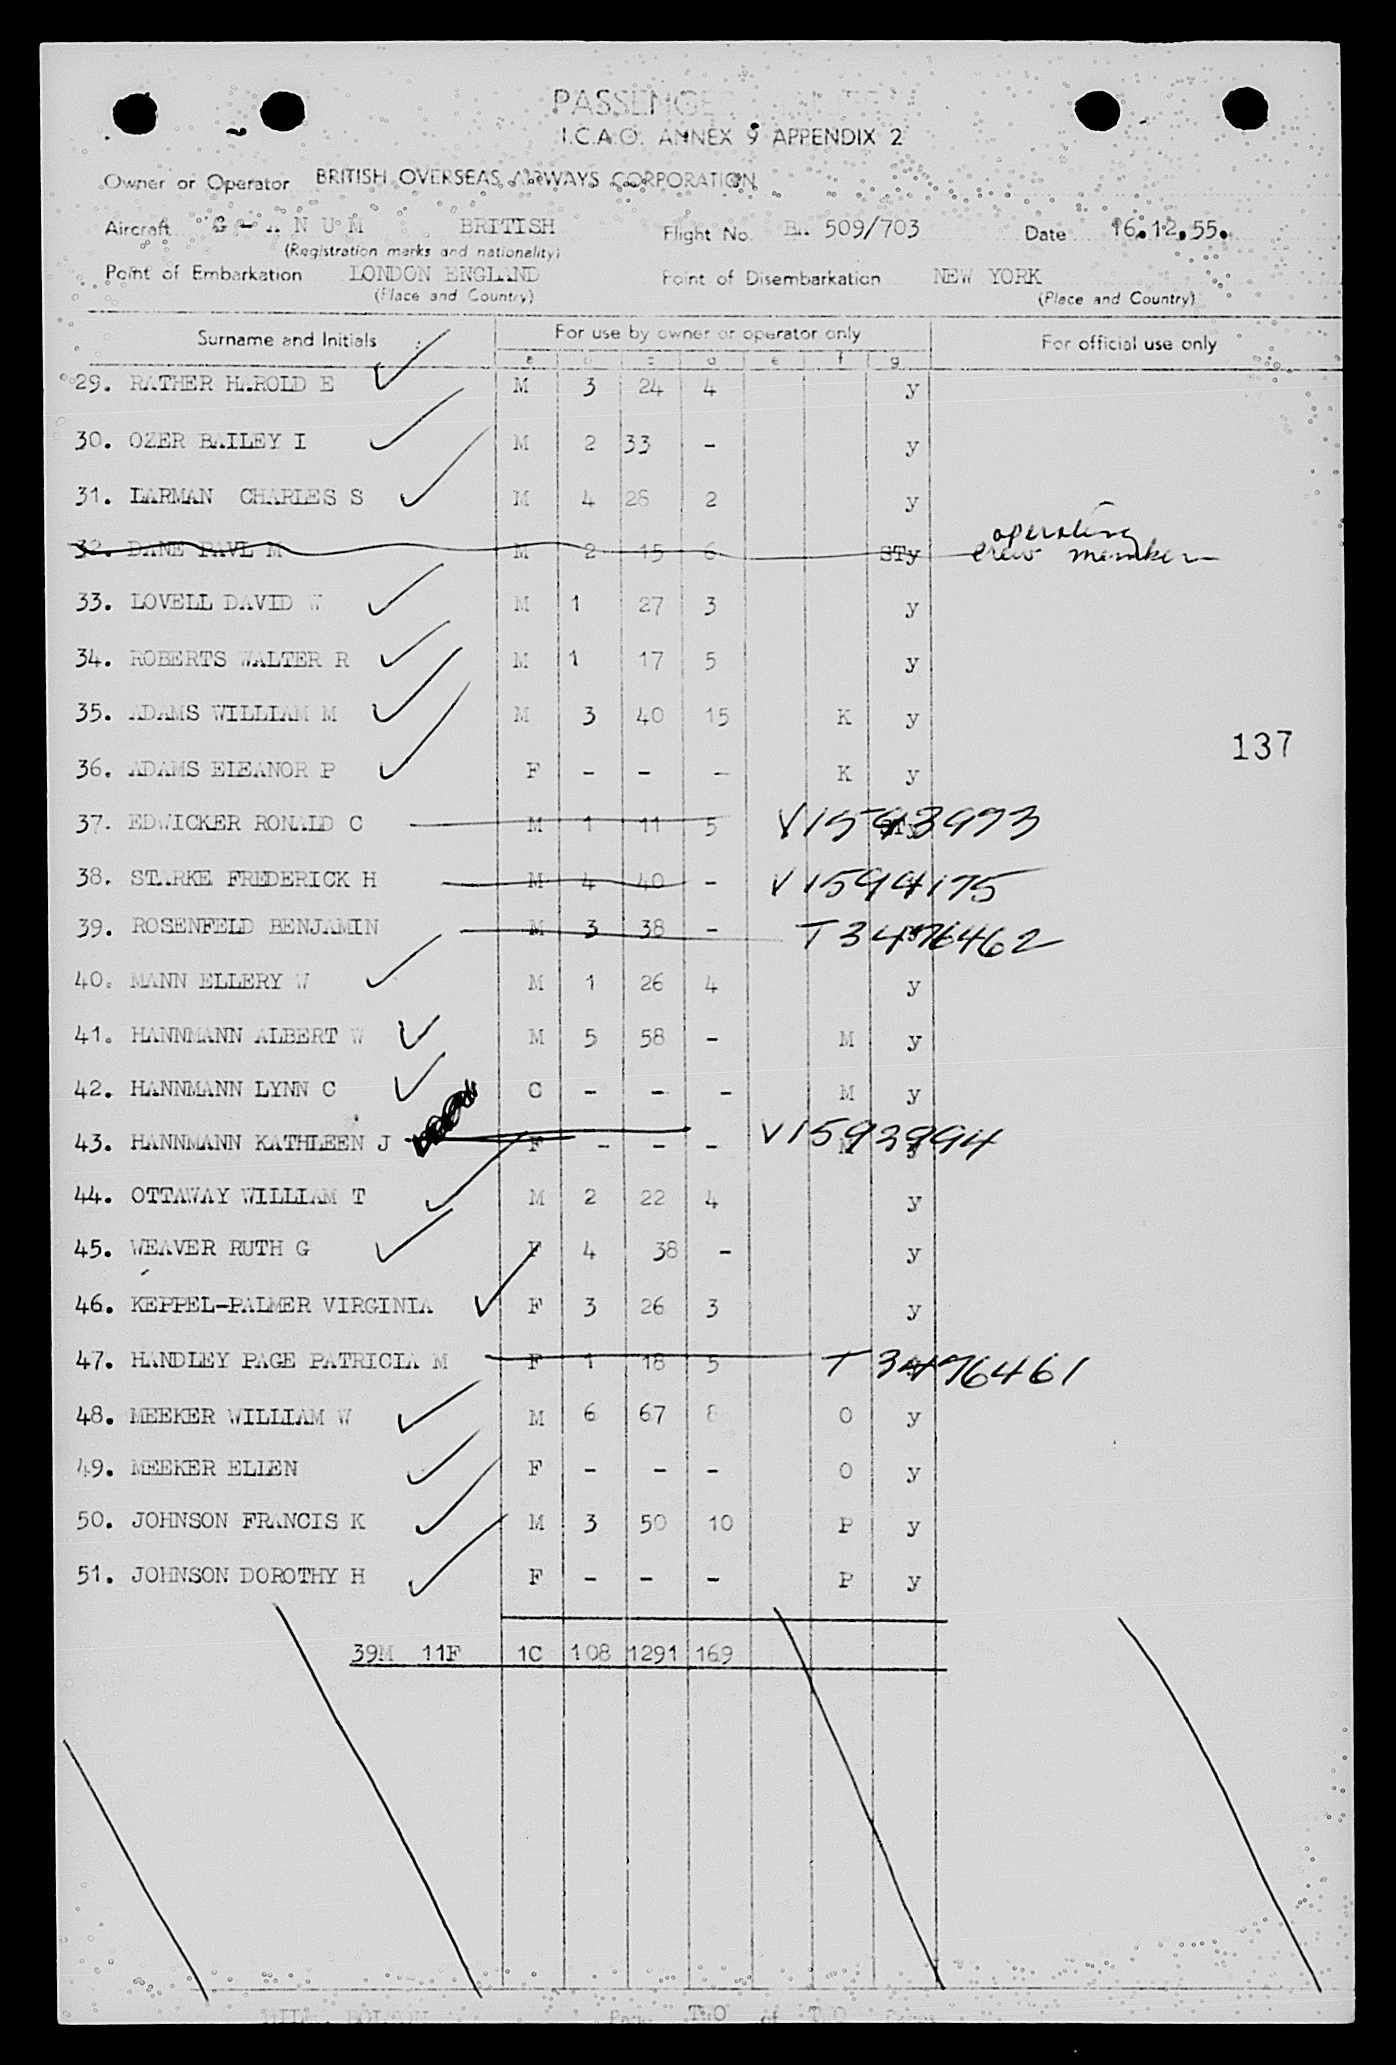 PASSENGER MANIFEST
I.C.A.O. ANNEX 9 APPENDIX 2
Owner or Operator BRITISH OVERSEAS AIRWAYS CORPORATION
Aircraft G - A N U M BRITISH Flight No. BA 509/703 Date 16.12.55.
(Registration marks and nationality)
Point of Embarkation LONDON ENGLAND Point of Disembarkation NEW YORK
(Place and Country) (Place and Country)
Surname and Initials For use by owner or operator only For official use only
a b c d e f g
29. RATHER HAROLD E M 3 24 4 y
30. OZER BAILEY I M 2 33 - y
31. LARMAN CHARLES S M 4 28 2 y
operating
32. DANE PAVL M M 2 15 6 STy crew member
33. LOVELL DAVID W M 1 27 3 y
34. ROBERTS WALTER R M 1 17 5 y
35. ADAMS WILLIAM M M 3 40 15 K y
137
36. ADAMS ELEANOR P F - - - K y
37. EDWICKER RONALD C M 1 11 5 STy V1593993
38. STARKE FREDERICK H M 4 40 - V1594175
39. ROSENFELD BENJAMIN M 3 38 - T3476462
40. MANN ELLERY W M 1 26 4 y
41. HANNMANN ALBERT W M 5 58 - M y
42. HANNMANN LYNN C C - - - M y
43. HANNMANN KATHLEEN J F - - - M y V1593994
44. OTTAWAY WILLIAM T M 2 22 4 y
45. WEAVER RUTH G F 4 38 - y
46. KEPPEL-PALMER VIRGINIA F 3 26 3 y
47. HANDLEY PAGE PATRICIA M F 1 18 5 T3476461
48. MEEKER WILLIAM W M 6 67 8 O y
49. MEEKER ELLEN F - - - O y
50. JOHNSON FRANCIS K M 3 50 10 P y
51. JOHNSON DOROTHY H F - - - P y
39M 11F 1C 108 1291 169
Page TWO of TWO Pages